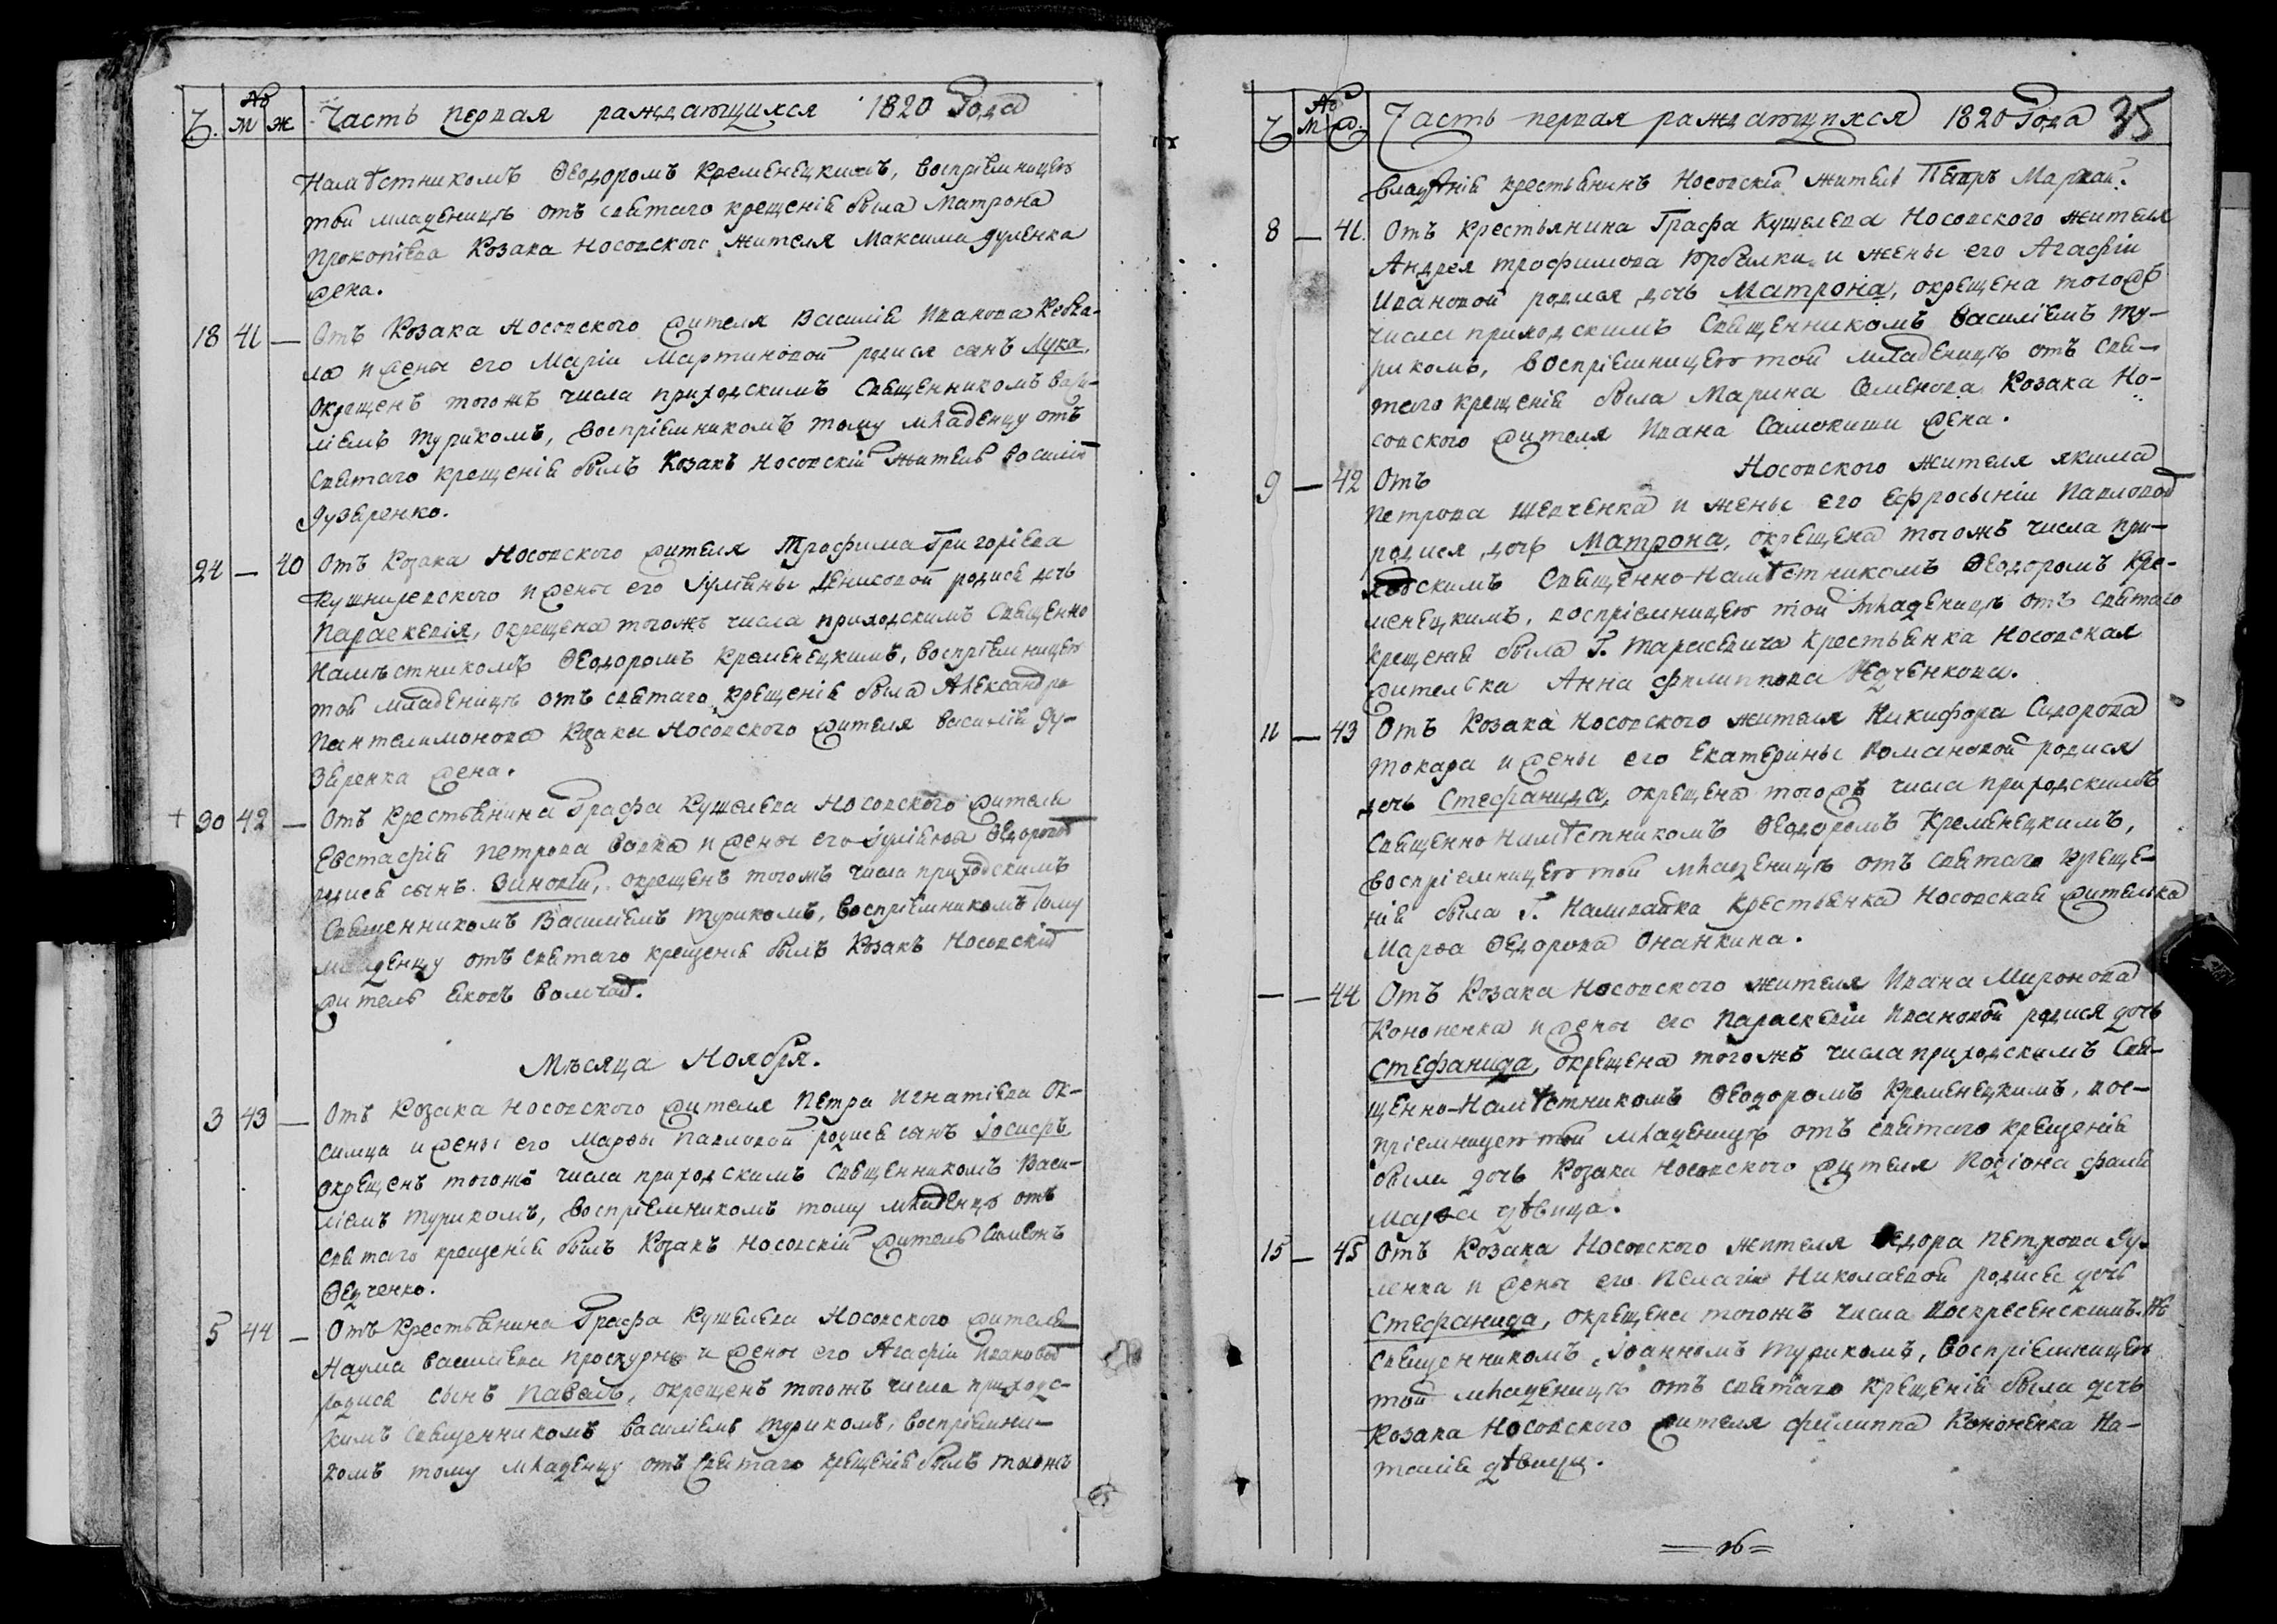 Ч. № М Ж Часть первая раждающихся 1820 Года
Намѣстникомъ Ѳеодоромъ Кременецкимъ, воспріемницею
той младеницѣ отъ святаго крещенія была Матрона
Прокопіева Козака Носовского жителя Максима Дуленка
жена.
18 41 — Отъ Козака Носовского жителя Василія Иванова
и жены его Маріи Мартиновой родися сынъ Лука,
окрещенъ тогожъ числа приходскимъ Священникомъ Васи-
ліемъ Турикомъ, воспріемникомъ тому младенцу отъ
святаго крещенія былъ Козакъ Носовскій житель Василій
Дузѣренко.
24 — 40 Отъ Козака Носовского жителя Трофима Григоріева
Кушниревского и жены его Іуліяны Денисовой родися дочь
Параскевія, окрещена тогожъ числа приходскимъ Священно
Намѣстникомъ Ѳеодоромъ Кременецкимъ, воспріемницею
той младеницѣ отъ святаго крещенія была Александра
Пантелимонова Козака Носовского жителя Василія Ду-
зѣренка жена.
+ 30 42 — Отъ Крестьянина Графа Кушелева Носовского жителя
Евстафія Петрова Вовка и жены его Іуліяны Ѳедоровой
родися сынъ Зиновій, окрещенъ тогожъ числа приходскимъ
Священникомъ Василіемъ Турикомъ, воспріемникомъ тому
младенцу отъ святаго крещенія былъ Козакъ Носовскій
житель Яковъ Волчай.
Мѣсяца Ноября.
3 43 — Отъ Козака Носовского жителя Петра Игнатіева Ок-
симца и жены его Марѳы Павловой родися сынъ Іосифъ
окрещенъ тогожъ числа приходскимъ священникомъ Васи-
ліемъ Турикомъ, воспріемникомъ тому младенцу отъ
святаго крещенія былъ Козакъ Носовскій житель Симеонъ
Ѳедченко.
5 44 — Отъ Крестьянина Графа Кушелева Носовского жителя
Наума Василіева Проскурнѣ и жены его Агафіи Ивановой
родися сынъ Павелъ, окрещенъ тогожъ числа приходс-
кимъ священникомъ Василіемъ Турикомъ, воспріемни-
комъ тому младенцу отъ святаго крещенія былъ тогожъ
Ч № М Ж. Часть первая раждающихся 1820 Года 35
владѣнія крестьянинъ Носовскій житель Петръ Маркай.
8 — 41. Отъ крестьянина Графа Кушелева Носовского жителя
Андрея Трофимова и жены его Агафіи
Ивановой родися дочь Матрона, окрещена тогожъ
числа приходскимъ Священникомъ Василіемъ Ту-
рикомъ, воспріемницею той младеницѣ отъ свя-
таго крещенія была Марина Семенова Козака Но-
совского жителя Ивана Самокиши жена.
9 — 42 Отъ Носовского жителя Якима
Петрова Шевченка и жены его Ефросыніи Павловой
родися дочь Матрона, окрещена тогожъ числа при-
ходскимъ Священно-Намѣстникомъ Ѳеодоромъ Кре-
менецкимъ, воспріемницею той младеницѣ отъ святаго
крещенія была Г. Тарасевича Крестьянка Носовская
жителька Анна Филиппова Ѳедченкова.
11 — 43 Отъ Козака Носовского жителя Никифора Сидорова
Токара и жены его Екатерины Романовой родися
дочь Стефанида, окрещена тогожъ числа приходскимъ
Священно Намѣстникомъ Ѳеодоромъ Кременецкимъ,
воспріемницею той младеницѣ отъ святаго креще-
нія была Г. Наливайка Крестьянка Носовская жителька
Марѳа Ѳедорова Онанкина.
— — 44 Отъ Козака Носовского жителя Ивана Миронова
Кононенка и жены его Параскевіи Ивановой родися дочь
Стефанида, окрещена тогожъ числа приходскимъ Свя-
щенно-Намѣстникомъ Ѳеодоромъ Кременецкимъ, вос-
пріемницею той младеницѣ отъ святаго крещенія
была дочь Козака Носовского жителя Родіона Фалѣ
Марѳа дѣвица.
15 — 45 Отъ Козака Носовского жителя Ѳедора Петрова Ду-
ленка и жены его Пелагіи Николаевой родися дочь
Стефанида, окрещена тогожъ числа Воскресенскимъ
Священникомъ Іоанномъ Турикомъ, воспріемницею
той младеницѣ отъ святаго крещенія была дочь
Козака Носовского жителя Филиппа Кононенка На-
талія дѣвица.